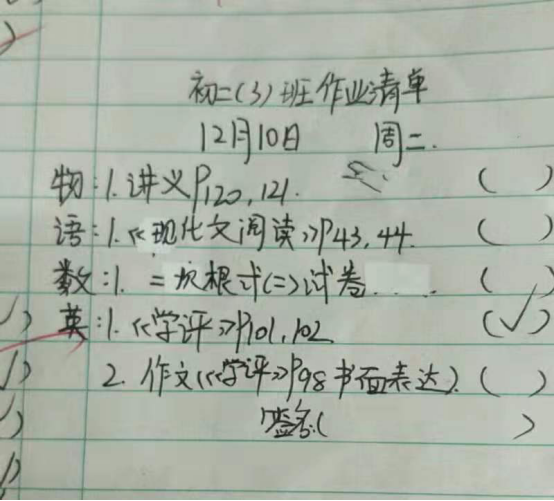 初二(3)班作业清单
12月10日 周二.
物:1.讲义P120,121. ( )
语:1.《现代文阅读》P43,44. ( )
数:1. 二次根式(二)试卷 ( )
英:1.《学评》P101,102 (√)
2. 作文(《学评》P98书面表达). ( )
签名( )